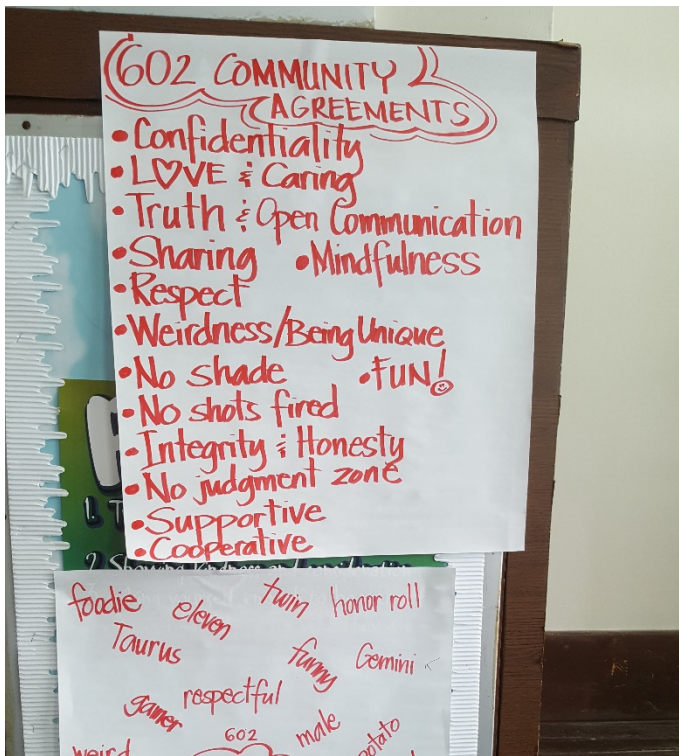 602 COMMUNITY
AGREEMENTS
• Confidentiality
• L♡VE & Caring
• Truth & Open Communication
• Sharing • Mindfulness
• Respect
• Weirdness/Being Unique
• No shade • FUN!
• No shots fired
• Integrity & Honesty
• No judgment zone
• Supportive
• Cooperative
foodie eleven twin honor roll
Taurus funny Gemini
gamer respectful
602 male potato
weird